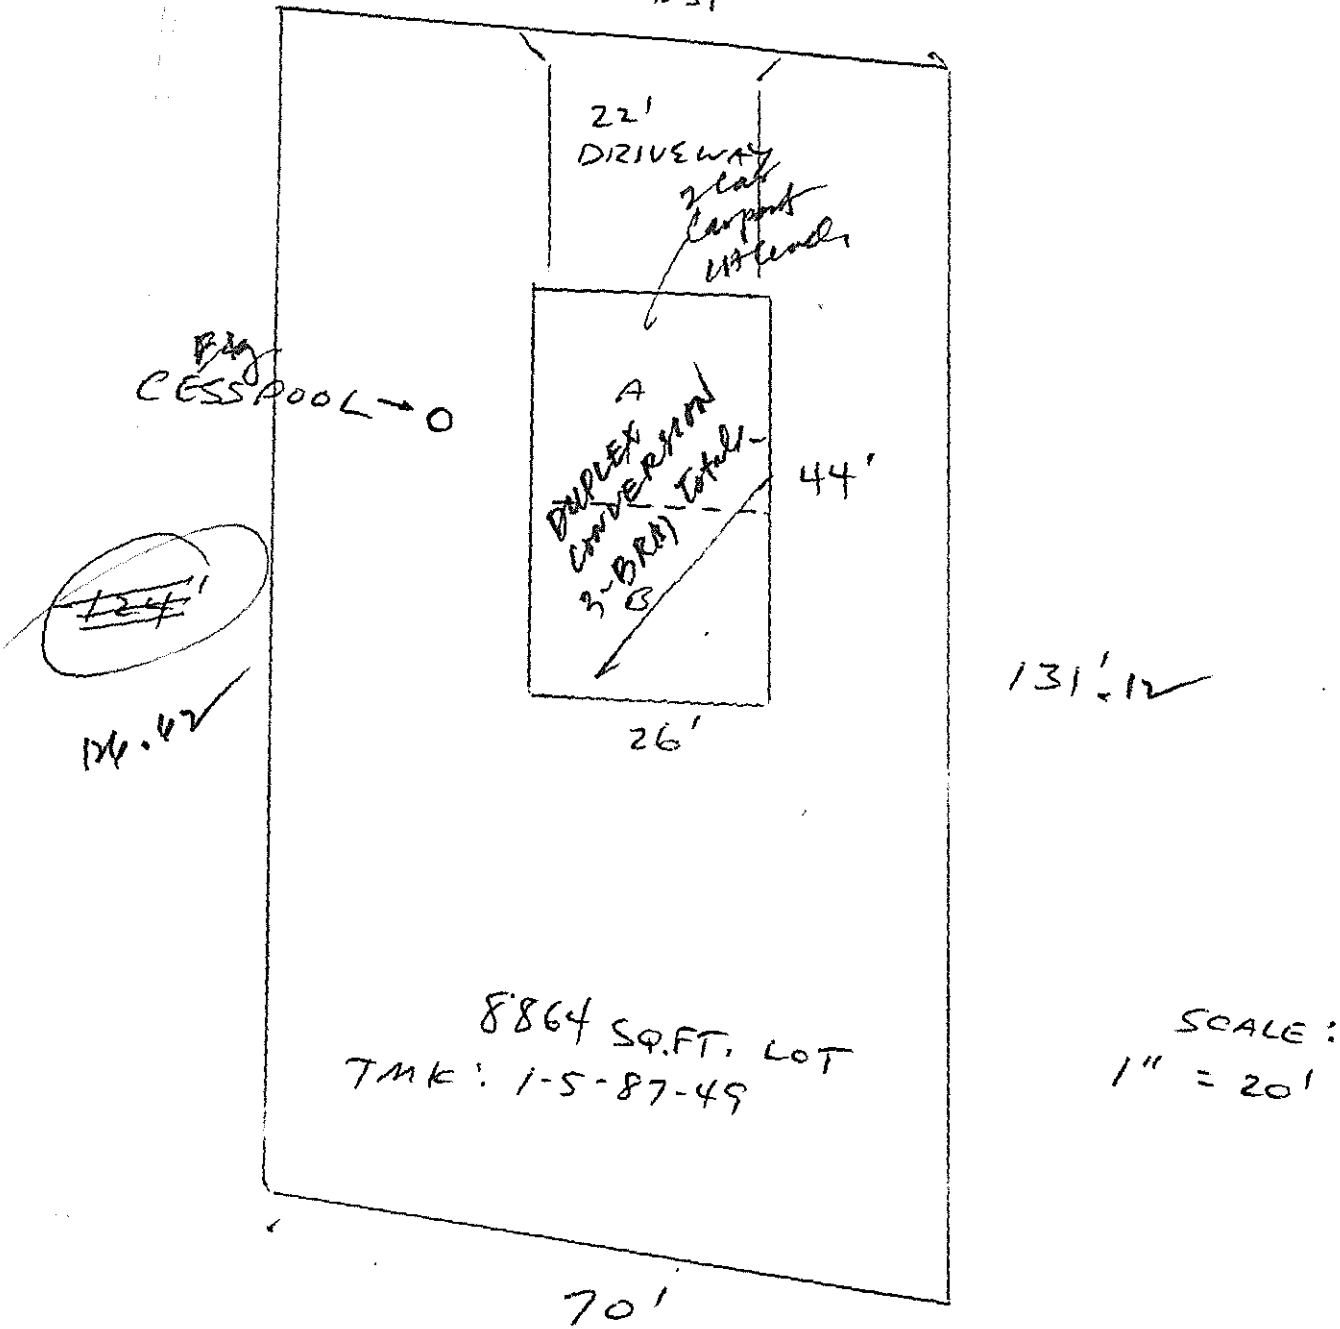 22'
DRIVEWAY
2 Car
Carport
CESSPOOL → O
A
DUPLEX
CONVERSION
3-BR(s) Total
B
44'
124'
131'.12
26'
8864 SQ.FT. LOT
TMK: 1-5-87-49
SCALE:
1" = 20'
70'